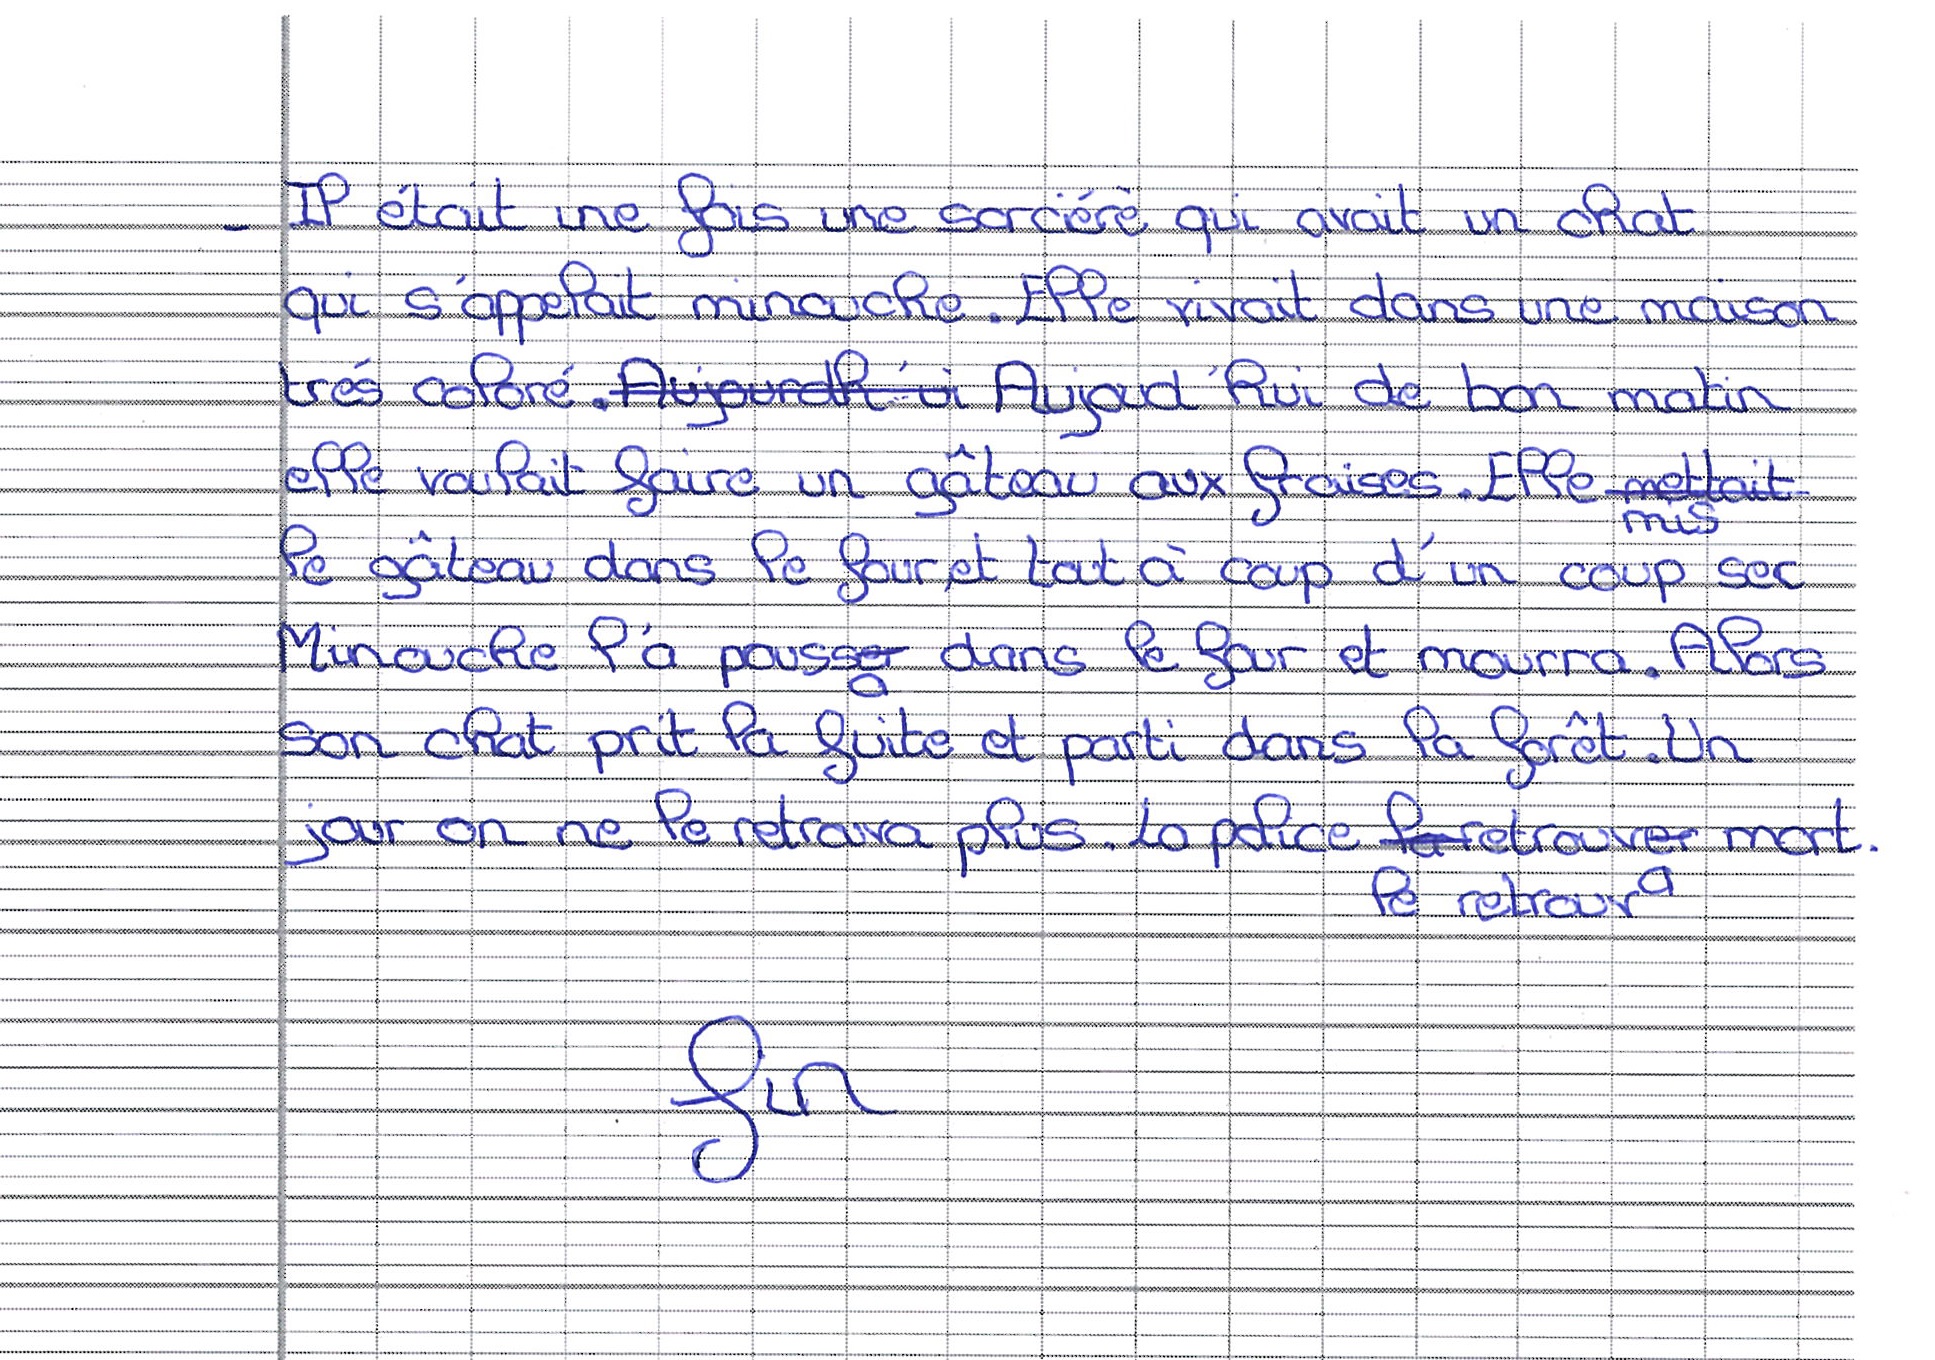 - Il était une fois une sorciérè qui avait un chat
qui s'appelait minouche. Elle vivait dans une maison
trés coloré. ~~Aujourdh'ui~~ Aujoud'hui de bon matin
elle voulait faire un gâteau aux fraises. Elle ~~mettait~~
mis
le gâteau dans le four, et tout à coup d'un coup sec
Minouche l'a pouss~~er~~ dans le four et mourra. Alors
a
son chat prit la fuite et parti dans la forêt. Un
jour on ne le retrouva plus. La police ~~la~~ retrouv~~er~~ mort.
le retrouva
fin